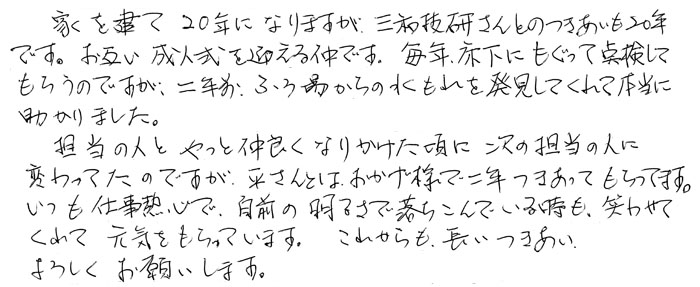 家を建て20年になりますが、三和技研さんとのつきあいも20年
です。お互い成人式を迎える仲です。毎年、床下にもぐって点検して
もらうのですが、二年前、ふろ場からの水もれを発見してくれて本当に
助かりました。
担当の人とやっと仲良くなりかけた頃に次の担当の人に
変わってたのですが、平さんとは、おかげ様で二年つきあってもらってます。
いつも仕事熱心で、自前の明るさで落ちこんでいる時も、笑わせて
くれて元気をもらっています。これからも、長いつきあい、
よろしくお願いします。